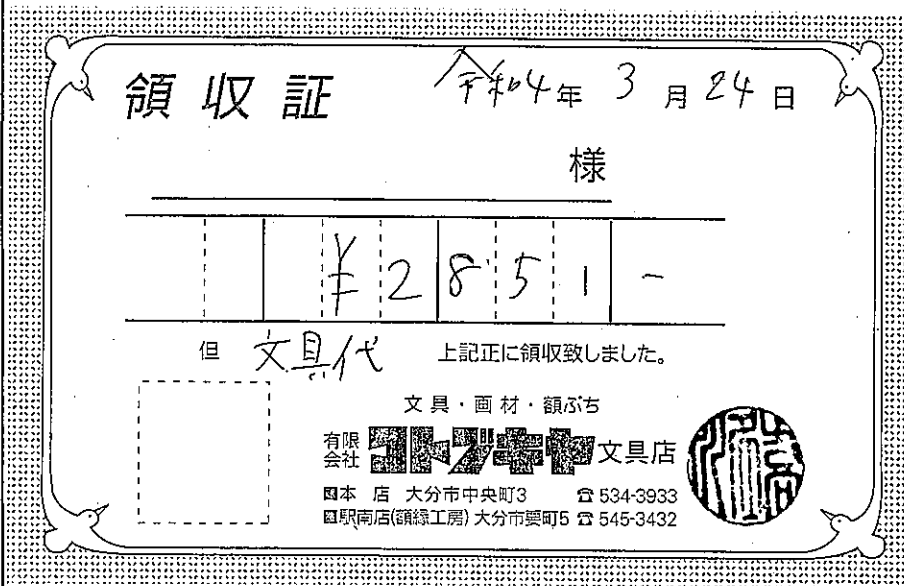 領収証
令和4年 3月24日
様
¥2851-
但 文具代 上記正に領収致しました。
文具・画材・額ぶち
有限会社 コトブキヤ 文具店
本店 大分市中央町3 ☎534-3933
駅南店(額縁工房) 大分市要町5 ☎545-3432